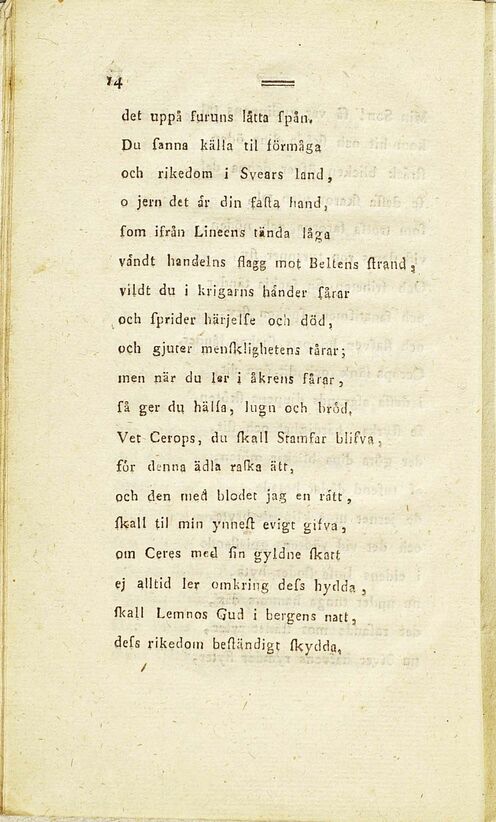 14
det uppå furuns låtta ſpån.
Du ſanna källa til förmåga
och rikedom i Svears land,
o jern det år din faſta hand,
ſom ifrån Lineens tånda låga
våndt handelns flagg mot Beltens ſtrand,
vildt du i krigarns hånder ſårar
och ſprider härjelſe och död,
och gjuter menſklighetens tårar;
men når du ler i åkrens fårar,
ſå ger du hålſa, lugn och bröd,
Vet Cerops, du ſkall Stamfar blifva,
för denna ädla raſka ått,
och den med blodet jag en rått,
ſkall til min ynneſt evigt gifva,
om Ceres med ſin gyldne ſkatt
ej alltid ler omkring deſs hydda,
ſkall Lemnos Gud i bergens natt,
deſs rikedom beſtändigt ſkydda,